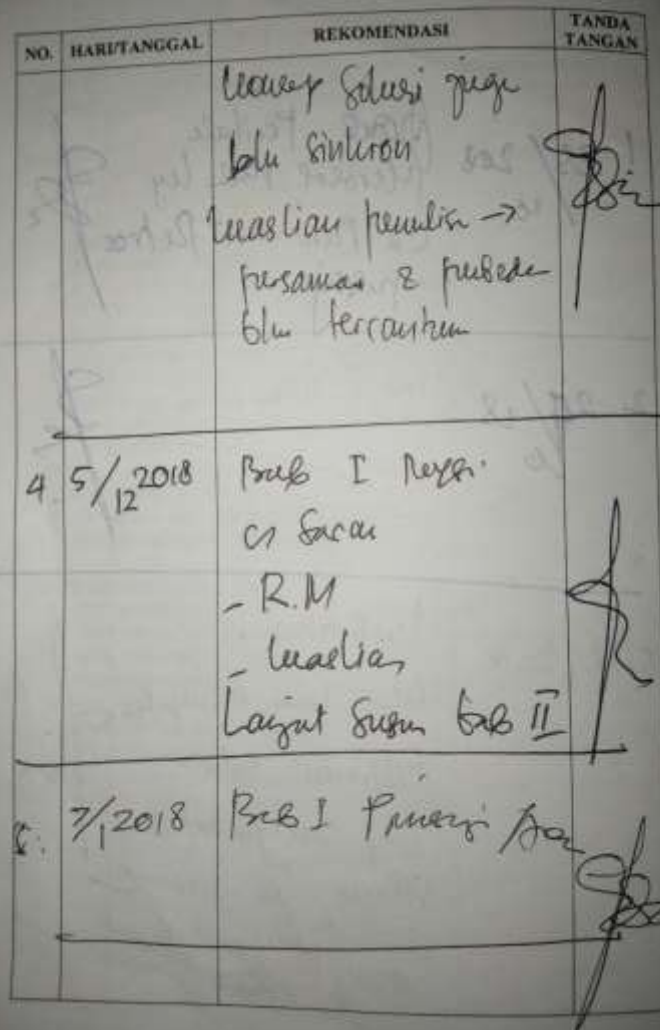 NO. HARI/TANGGAL REKOMENDASI TANDA TANGAN
konsep Solusi juga
blm sinkron
keaslian penulisan →
persamaan & perbedaan
blm tercantum
4 5/12 2018 Bab I Revisi
Saran
- R.M
- keaslian
Lanjut Susun bab II
5. 7/1 2018 Bab I Prinsip Acc